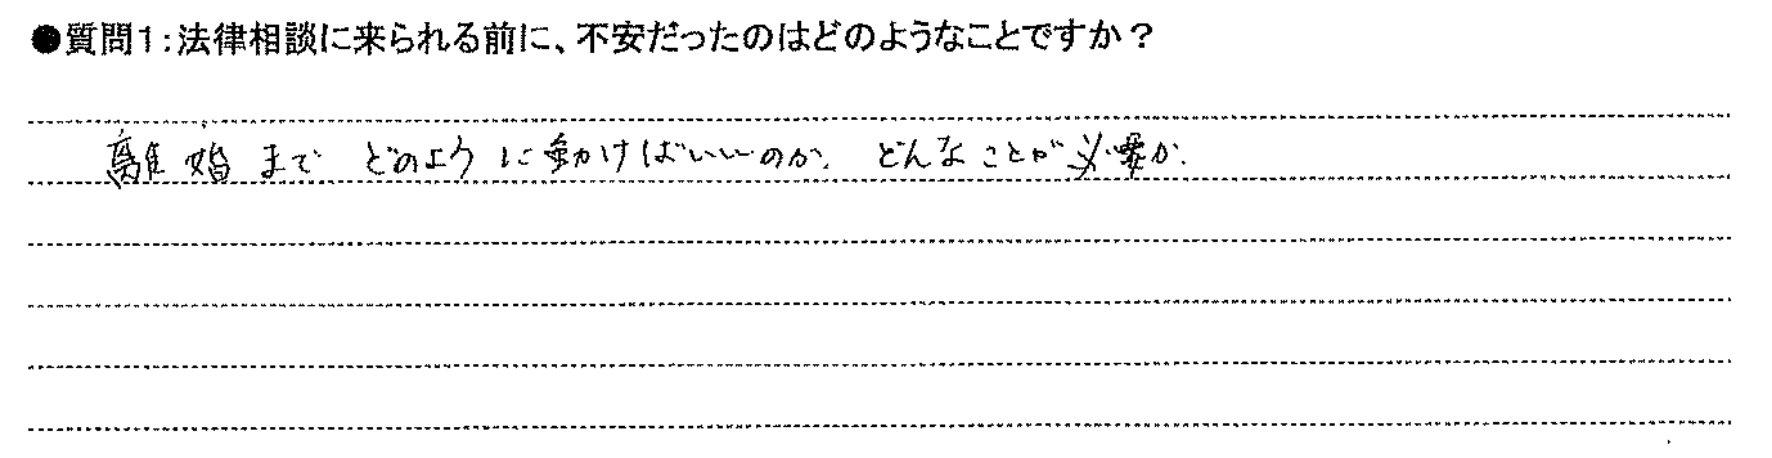 ●質問1:法律相談に来られる前に、不安だったのはどのようなことですか?
離婚まで どのように動けばいいのか、どんなことが必要か.